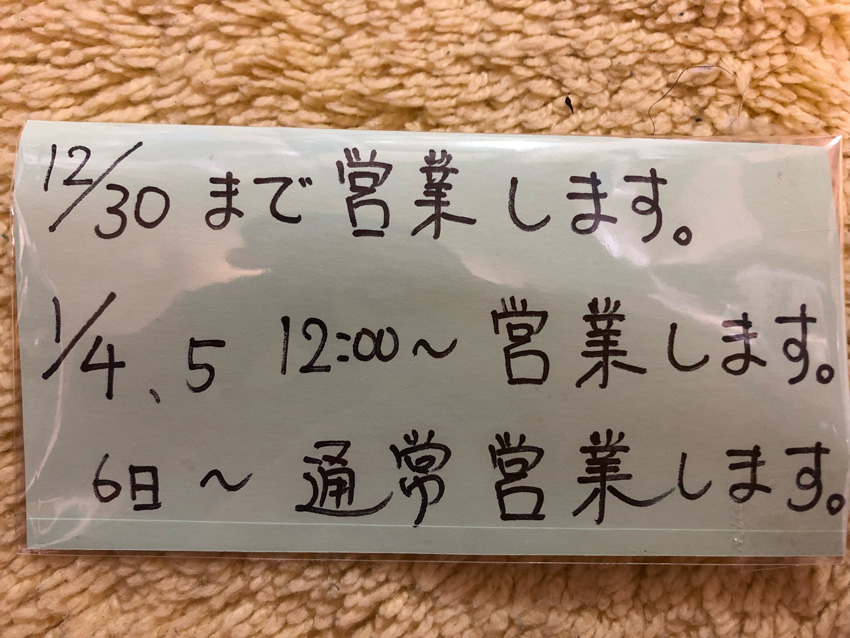 12/30 まで営業します。
1/4、5 12:00～ 営業します。
6日～ 通常営業します。